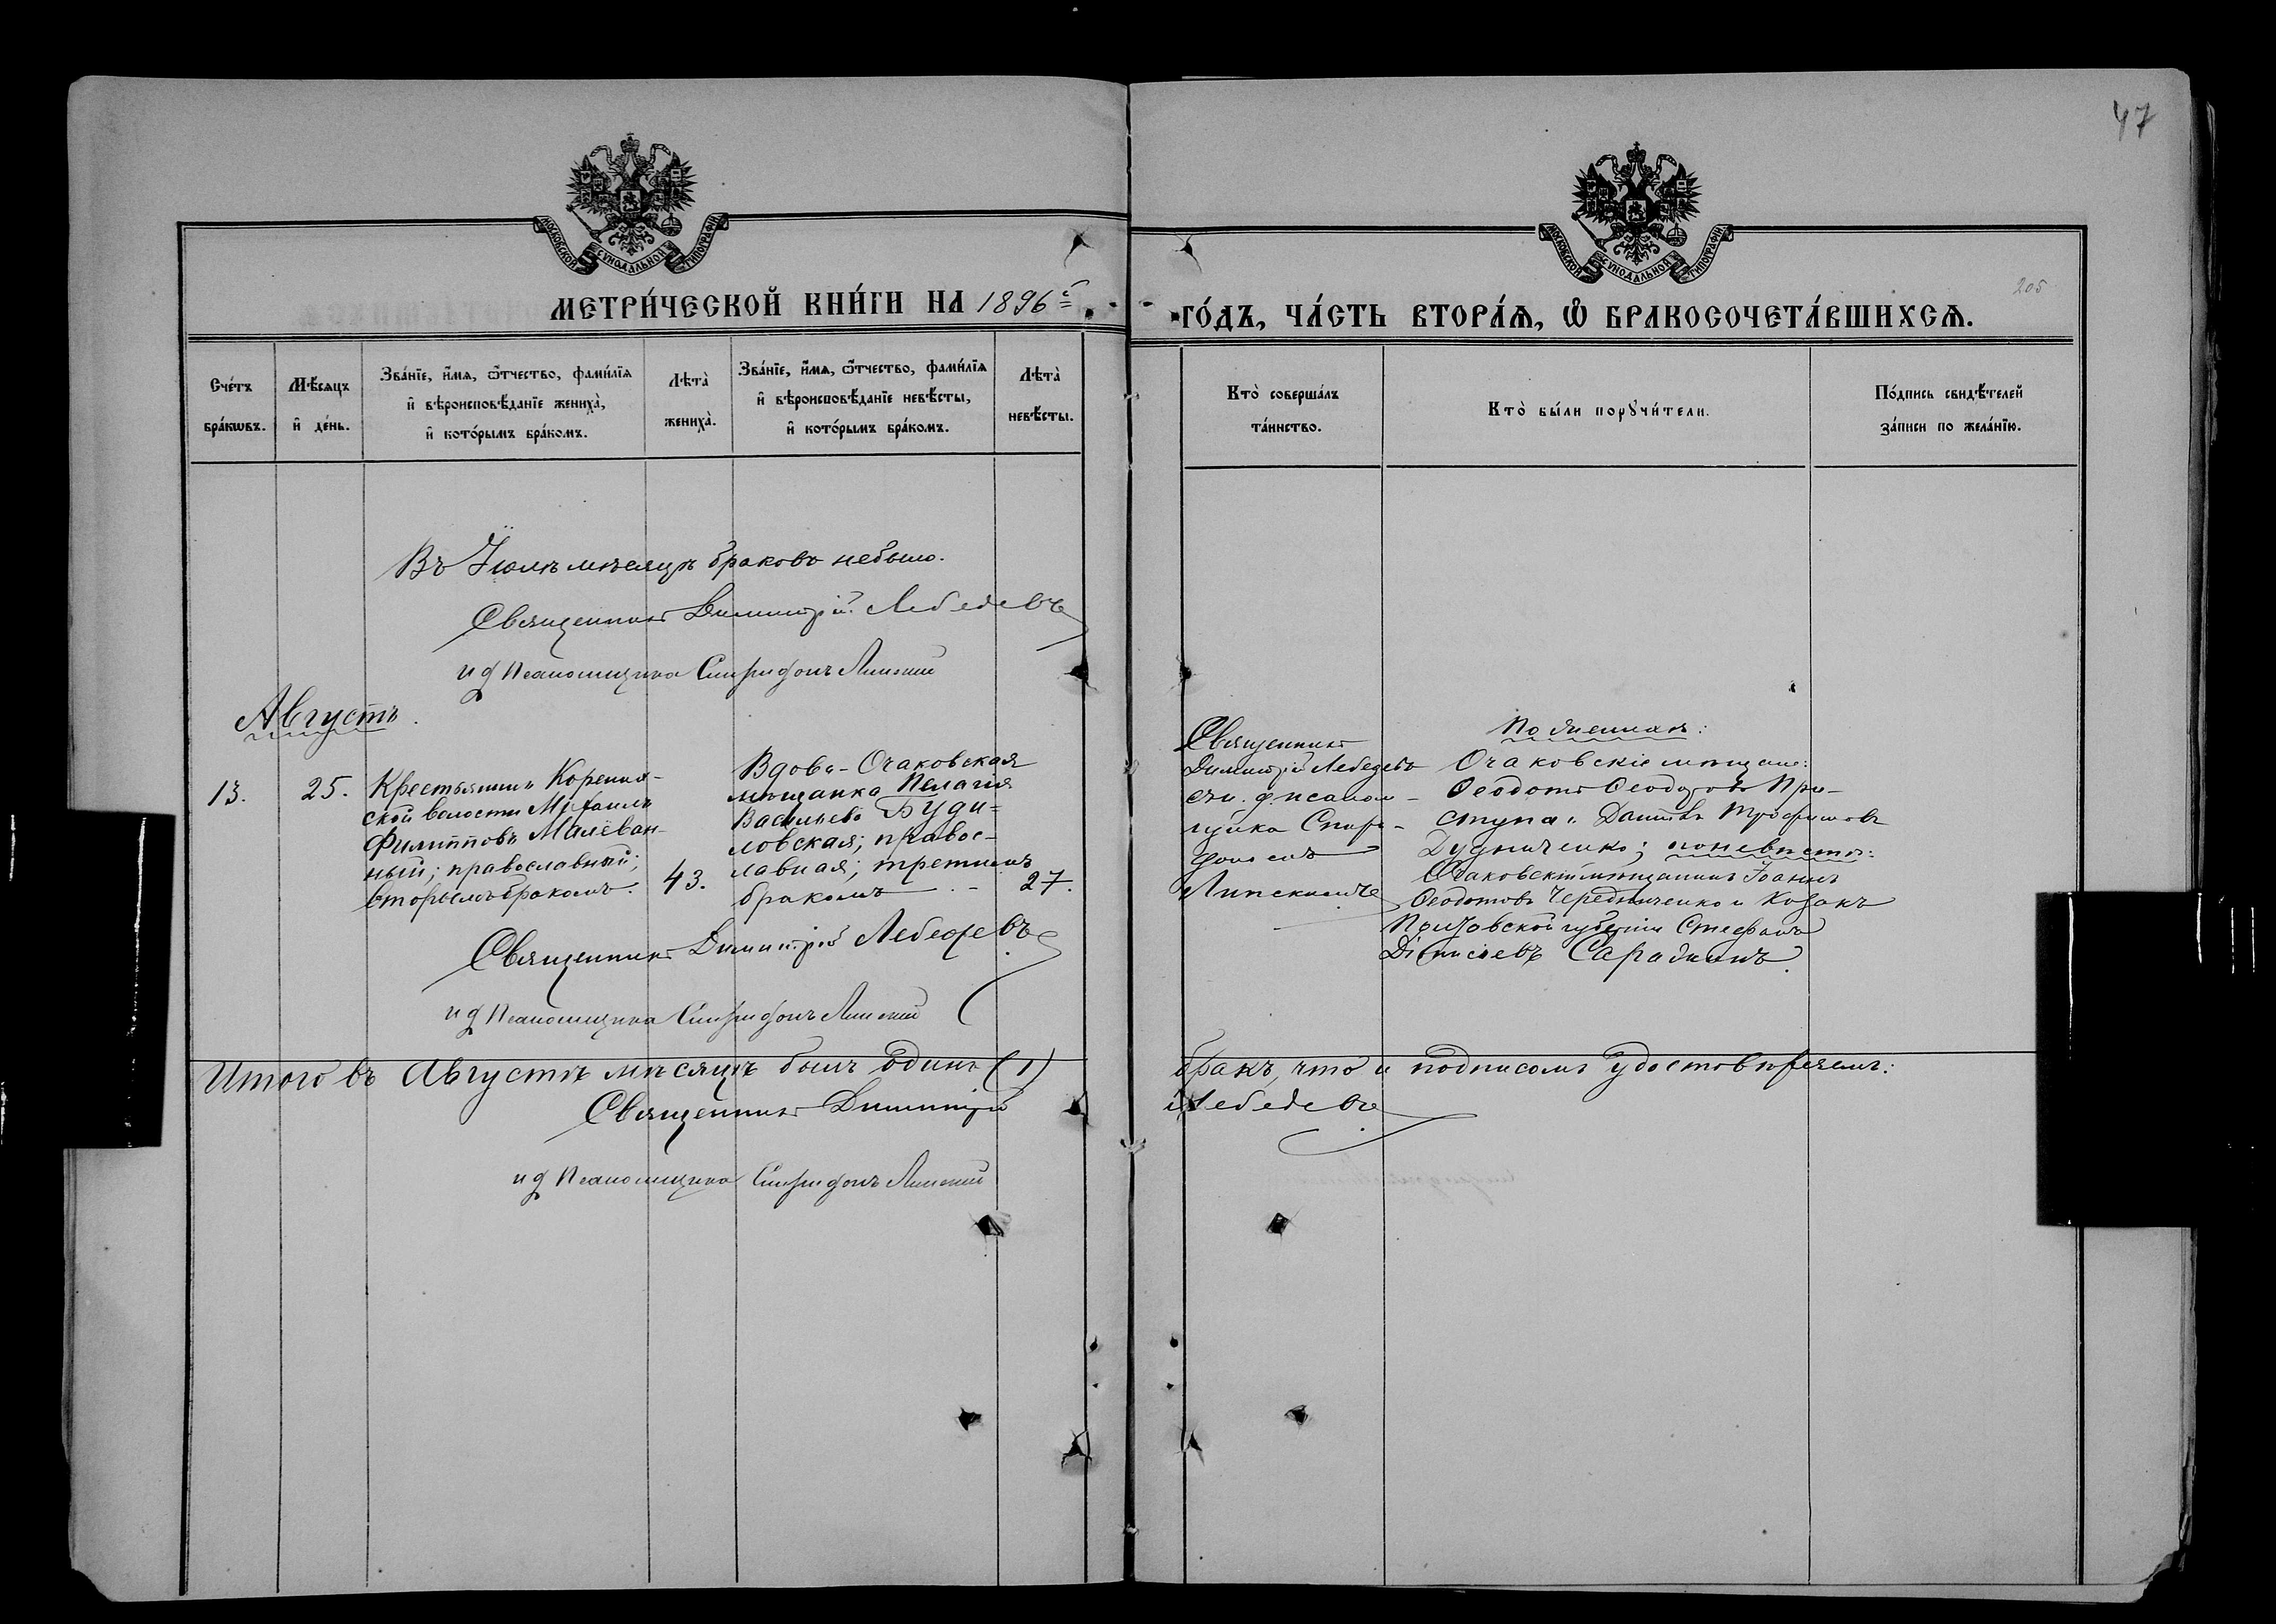 47
МОСКОВСКОЙ СѴНОДАЛЬНОЙ ТИПОГРАФІИ
МОСКОВСКОЙ СѴНОДАЛЬНОЙ ТИПОГРАФІИ
205
МЕТРИ́ЧЕСКОЙ КНИ́ГИ НА 1896й
ГО́ДЪ, ЧА́СТЬ ВТОРА́Ѧ, Ѡ БРАКОСОЧЕТА́ВШИХСѦ.
Сче́тъ бра́кѡвъ.
Мѣ́сяцъ и де́нь.
Зва́нїе, и́мѧ, ѻ́тчество, фами́лїѧ и вѣроисповѣ́данїе жениха̀, и кото́рымъ бра́комъ.
Лѣта̀ жениха̀.
Зва́нїе, и́мѧ, ѻ́тчество, фами́лїѧ и вѣроисповѣ́данїе невѣ́сты, и кото́рымъ бра́комъ.
Лѣта̀ невѣ́сты.
Кто̀ соверша́лъ та́инство.
Кто̀ бы́ли порꙋчи́тели.
По́дпись свидѣ́телей за́писи по жела́нїю.
Въ Іюлѣ мѣсяцѣ браковъ небыло.
Священникъ Димитрій Лебедевъ
и д Псаломщика Спиридонъ Липскій
Августъ
13.
25.
Крестьянинъ
ской волости Михаилъ
Филипповъ Малёван-
ный; православный;
вторымъ бракомъ.
43.
Вдова-Очаковская
мѣщанка Пелагія
Васильева Буди-
ловская; правос-
лавная; третьимъ
бракомъ
27.
Священникъ
Димитрій Лебедевъ
съ и. д. псалом-
щика Спири-
дономъ
Липскимъ
По женихѣ:
Очаковскіе мѣщане:
Ѳеодотъ Ѳеодотовъ При-
ступа и Трофимовъ
Дудниченко; по невѣстѣ:
Очаковскій мѣщанинъ Іоаннъ
Ѳеодотовъ Чередниченко и Козакъ
губерніи Стефанъ
Діонисіевъ
Священникъ Димитрій Лебедевъ
и д Псаломщика Спиридонъ Липскій
Итого въ Августѣ мѣсяцѣ былъ одинъ (1)
бракъ, что и подписомъ удостовѣряемъ:
Священникъ Димитрій
Лебедевъ
и д Псаломщика Спиридонъ Липскій